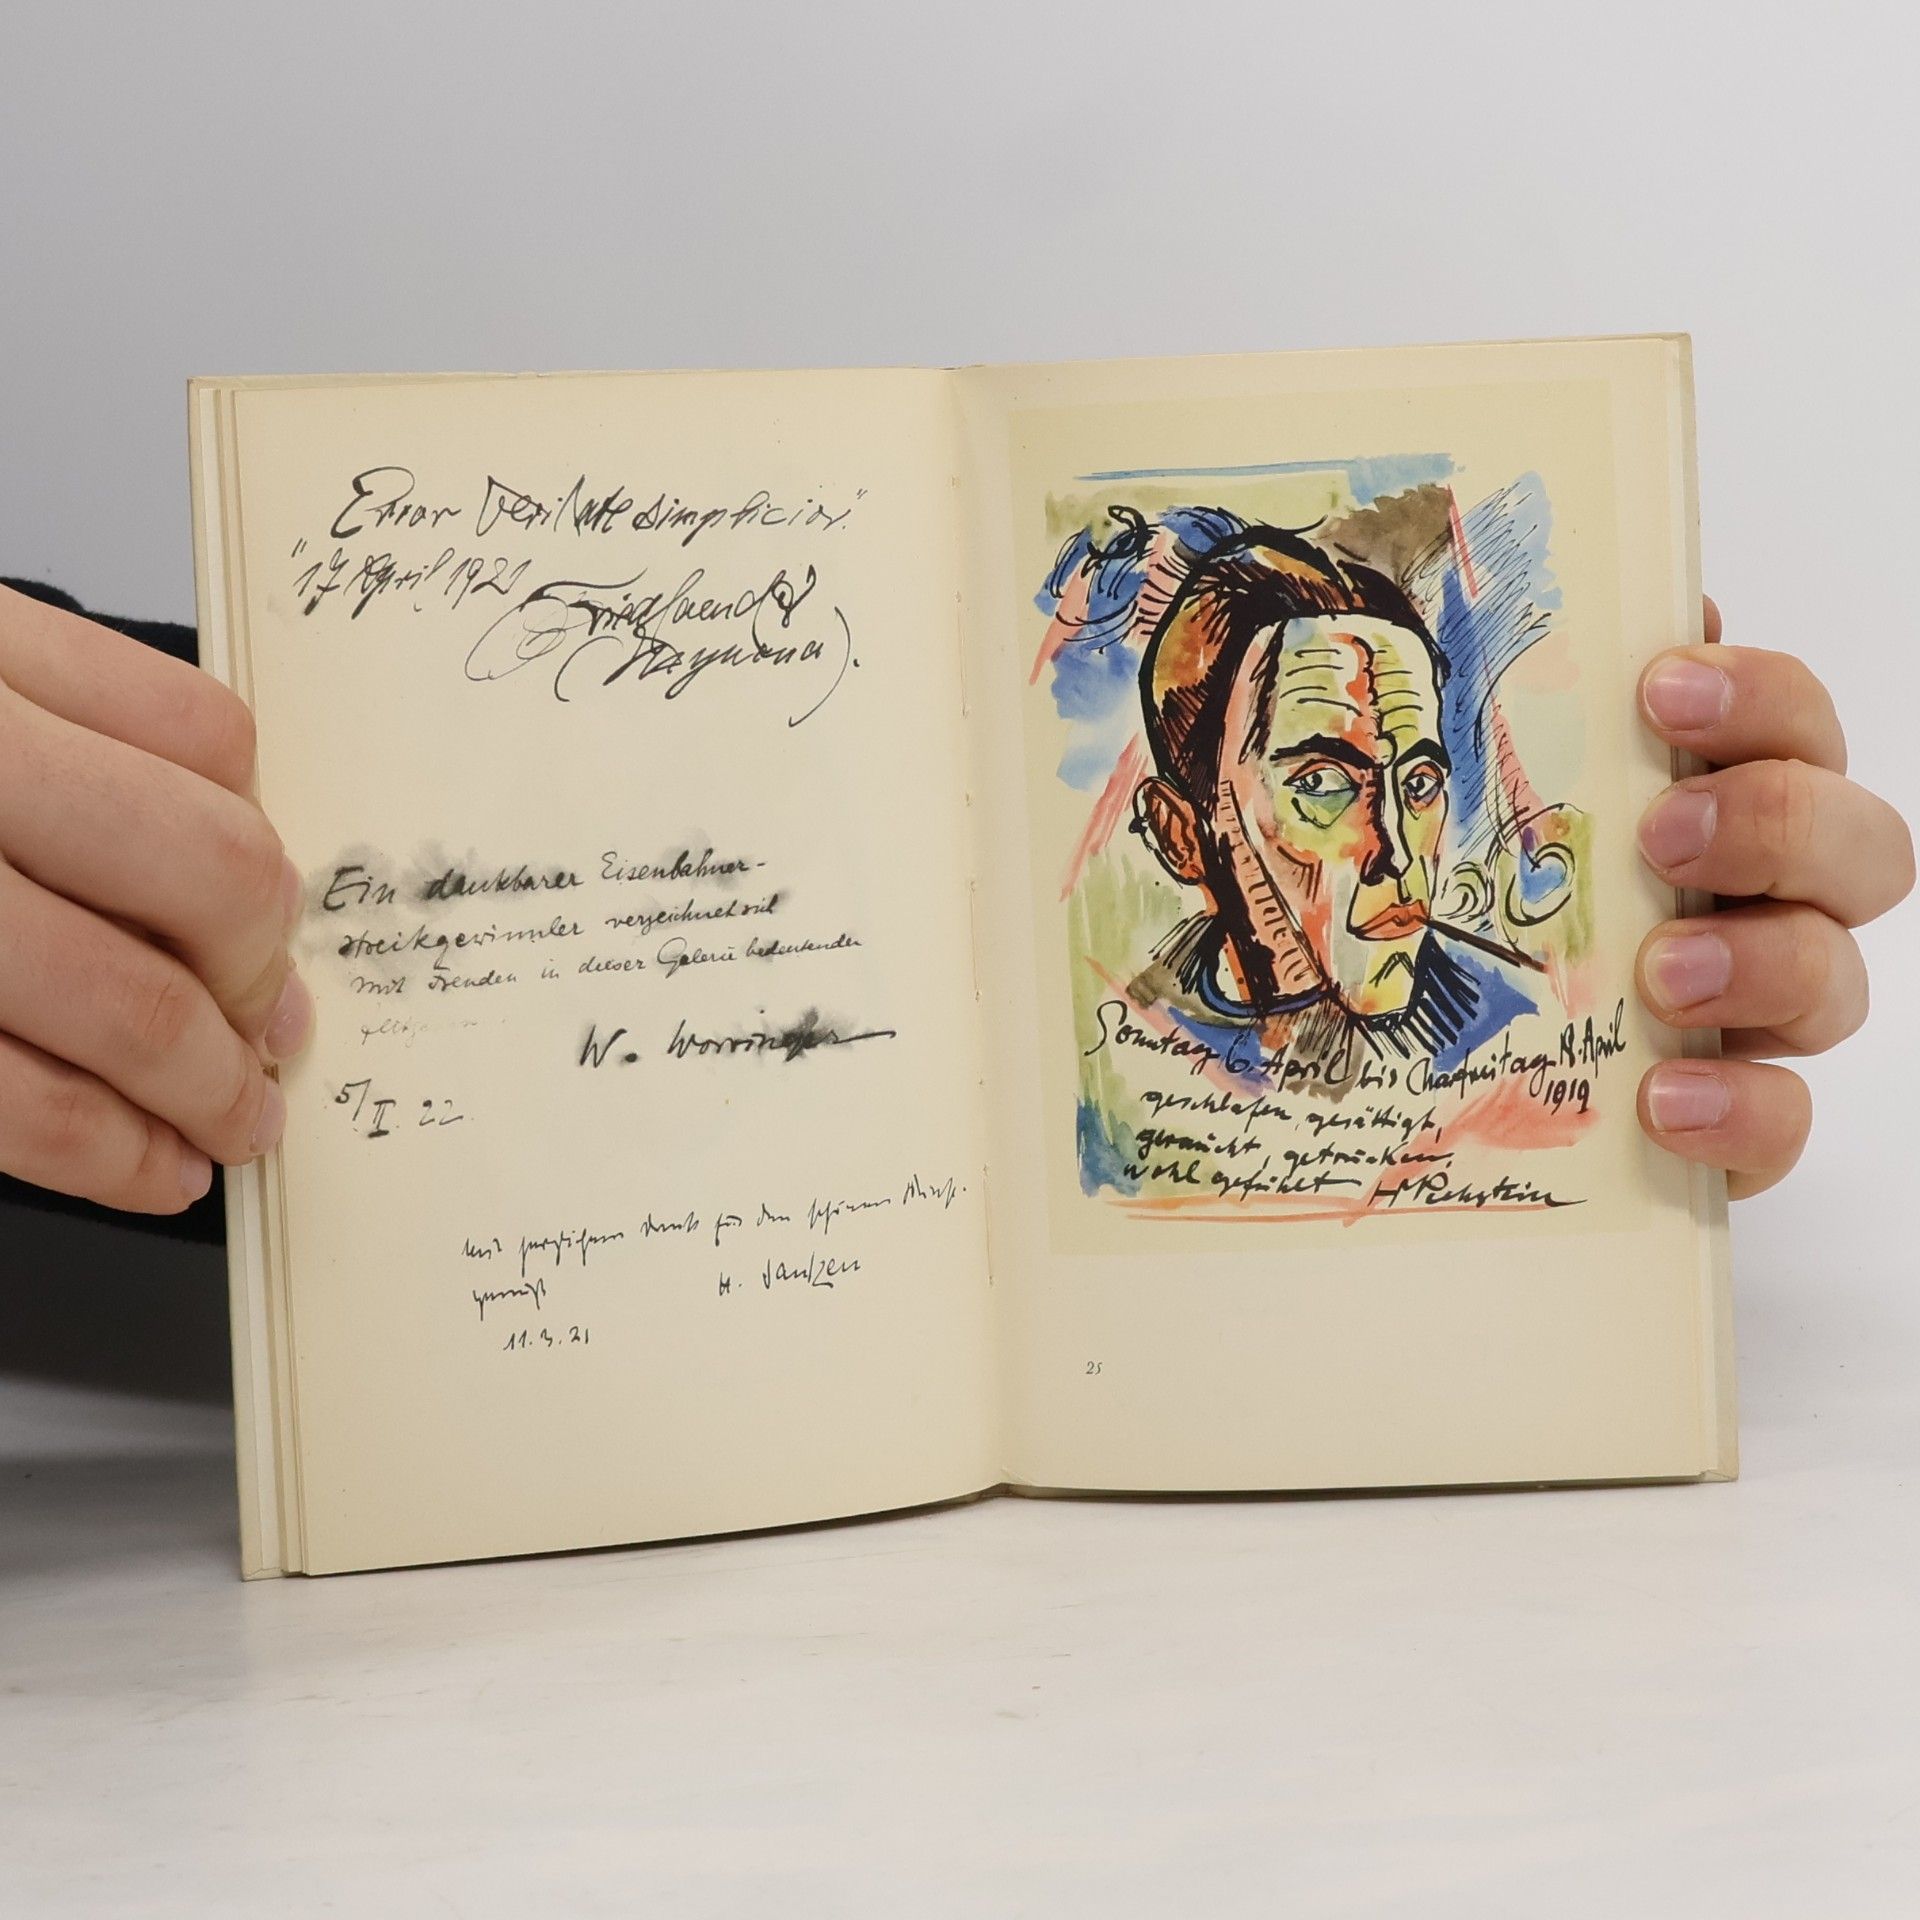 Error Veritate simplicior."
"17 April 1921
Friedlaender
(Mynona).
Ein dankbarer Eisenbahner-
streikgewinnler verzeichnet sich
mit Freuden in dieser Galerie bedeutender
W. Worringer
5/II. 22.
Mit herzlichem Dank für den schönen
H. Jantzen
11.3.21
Sonntag 6. April bis Charfreitag 18. April
1919
geschlafen, gesättigt,
geraucht, getrunken,
wohl gefühlt HMPechstein
25